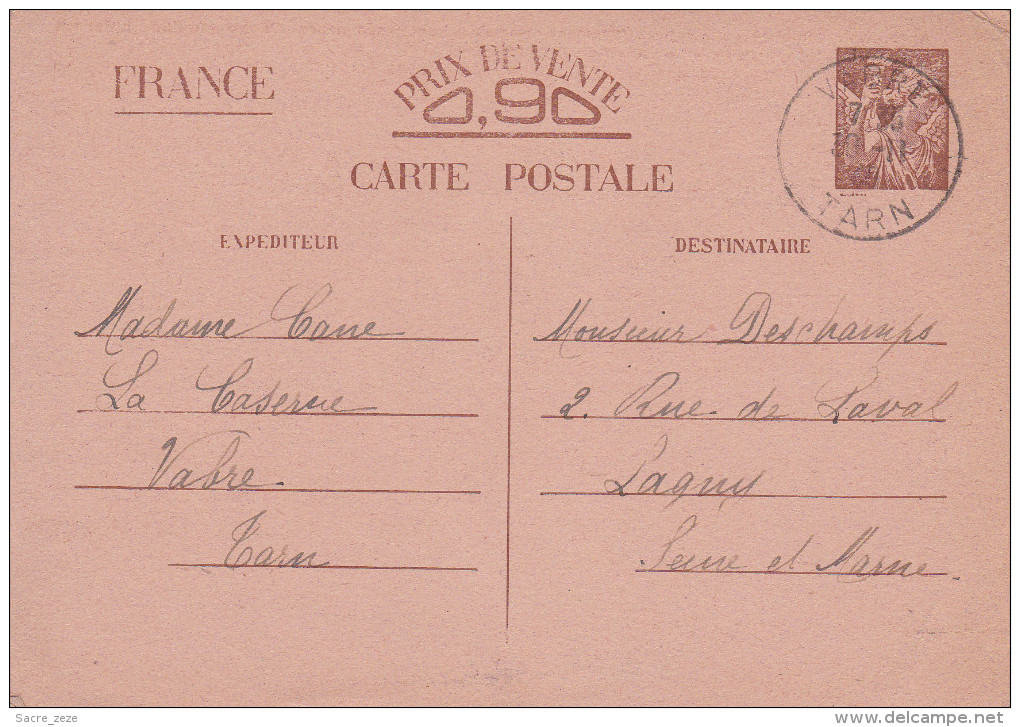 FRANCE
PRIX DE VENTE
0,90
CARTE POSTALE
VABRE
30 -11
TARN
EXPEDITEUR
Madame Cane
La Caserne
Vabre.
Tarn
DESTINATAIRE
Monsieur Deschamps
2. Rue de Laval
Lagny
Seine et Marne.
Sacre_zeze
delcampe.net